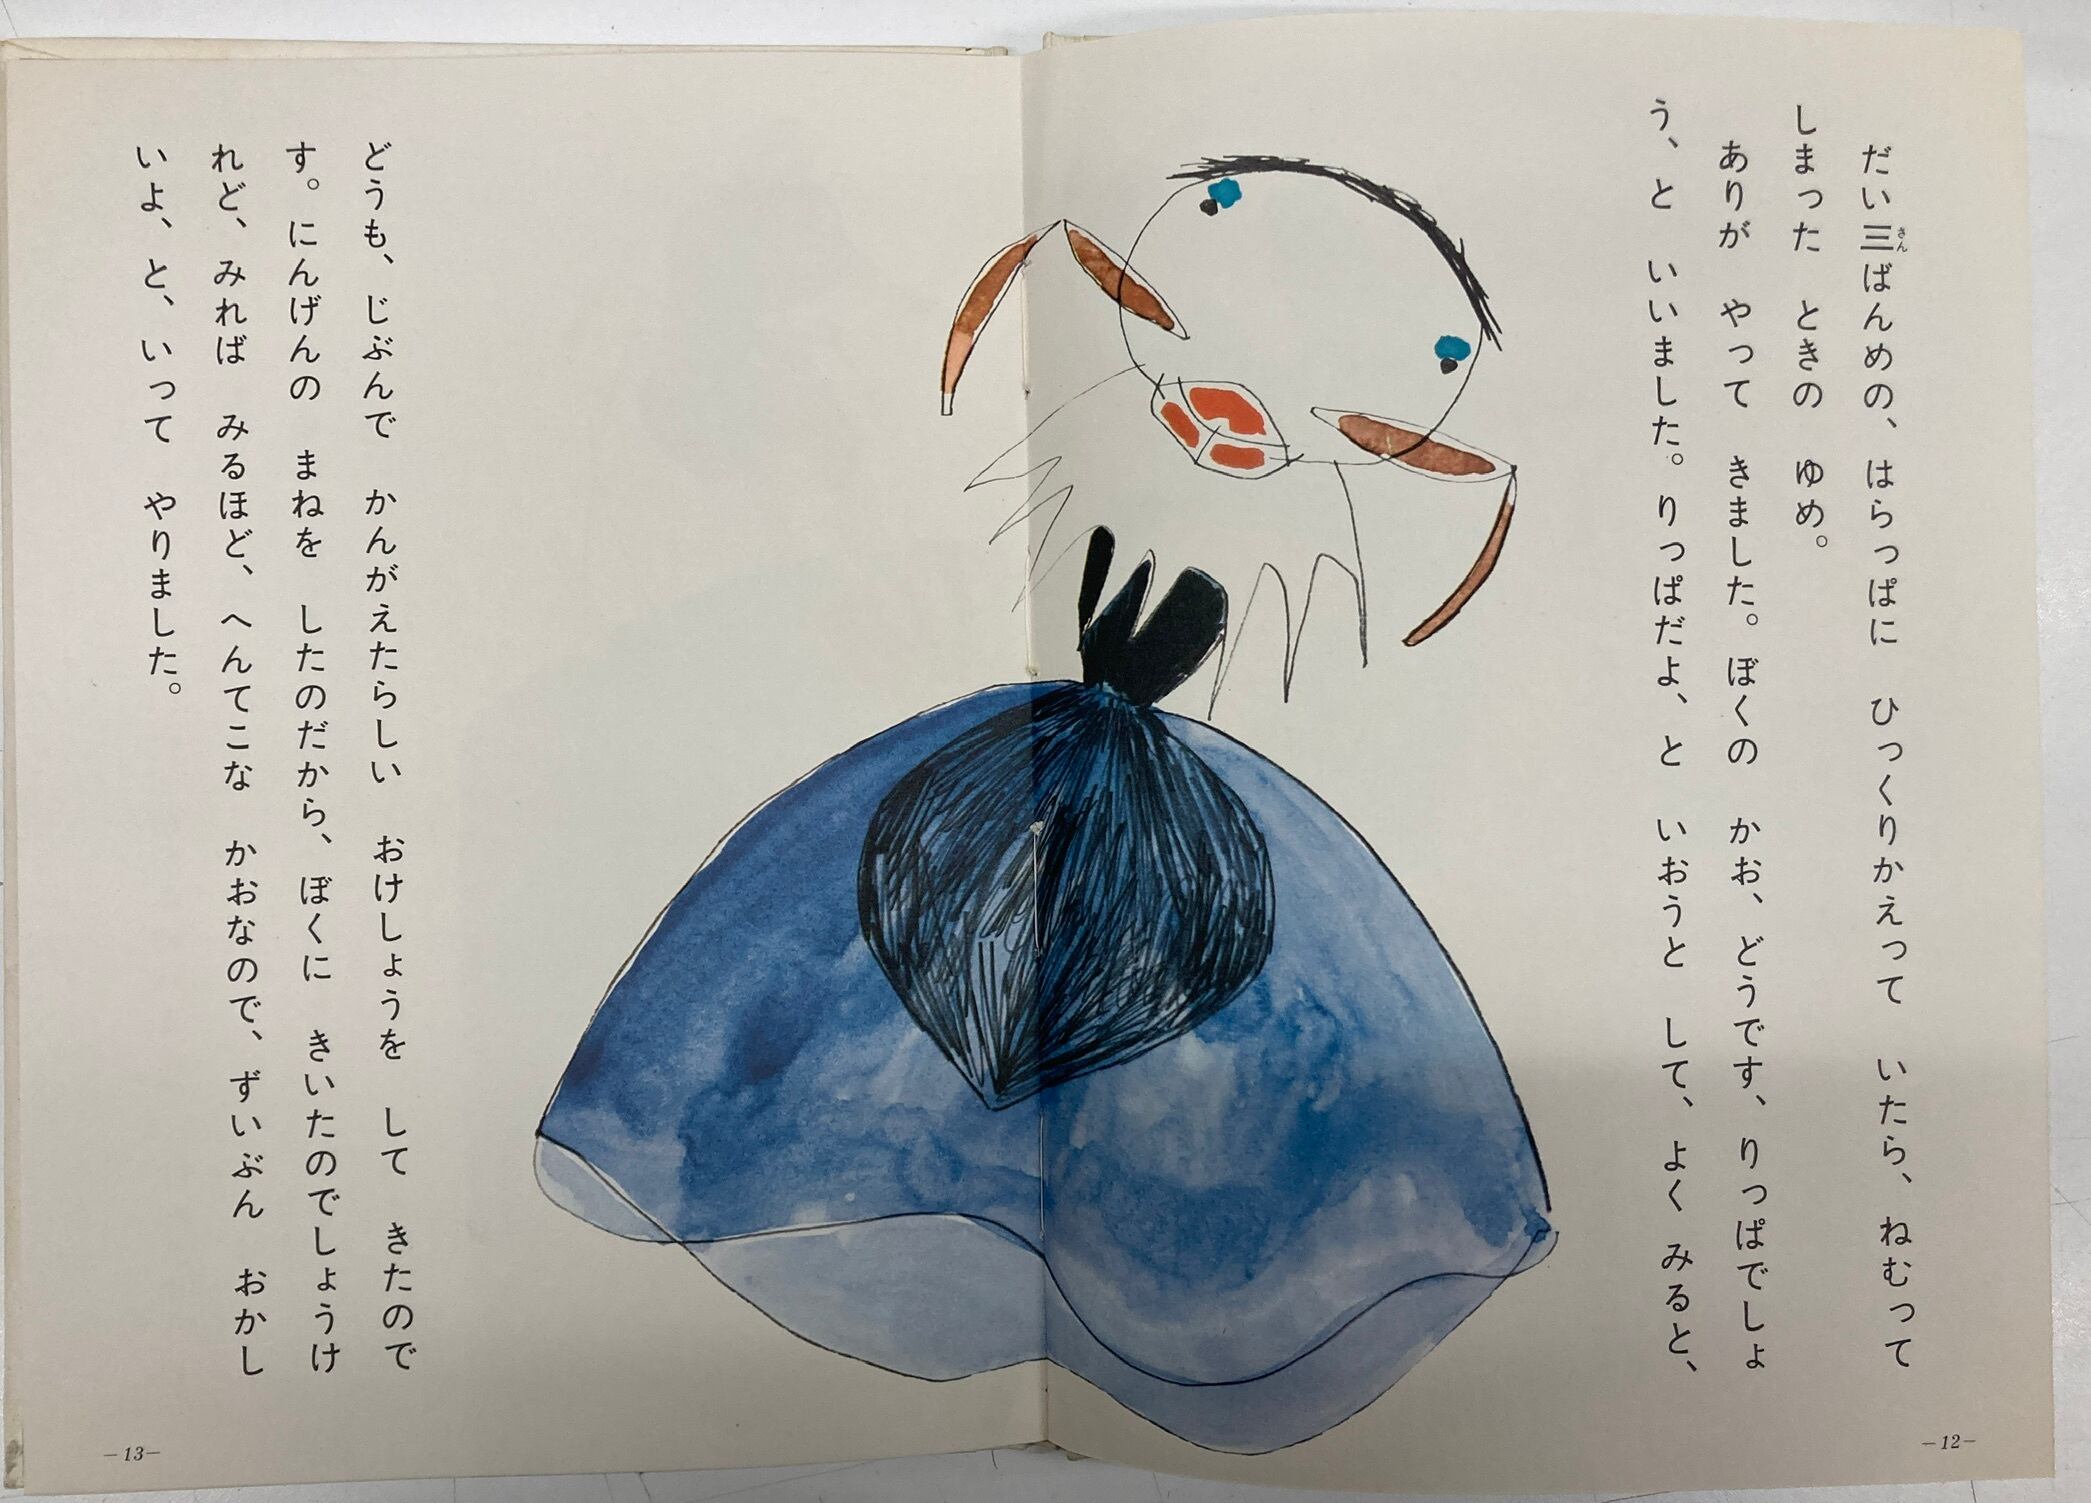 だい三ばんめの、はらっぱに ひっくりかえって いたら、ねむって
さん
しまった ときの ゆめ。
ありが やって きました。ぼくの かお、どうです、りっぱでしょ
う、と いいました。りっぱだよ、と いおうと して、よく みると、
－12－
どうも、じぶんで かんがえたらしい おけしょうを して きたので
す。にんげんの まねを したのだから、ぼくに きいたのでしょうけ
れど、みれば みるほど、へんてこな かおなので、ずいぶん おかし
いよ、と、いって やりました。
－13－